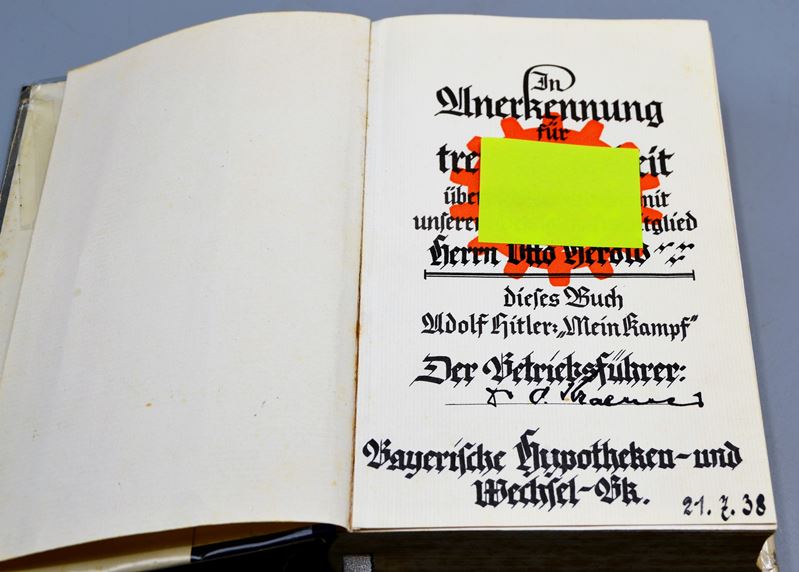 In
Anerkennung
für
tre eit
übe mit
unserer tglied
Herrn Otto Herold
dieses Buch
Adolf Hitler: „Mein Kampf“
Der Betriebsführer:
Bayerische Hypotheken- und
Wechsel-Bk.
21.7.38